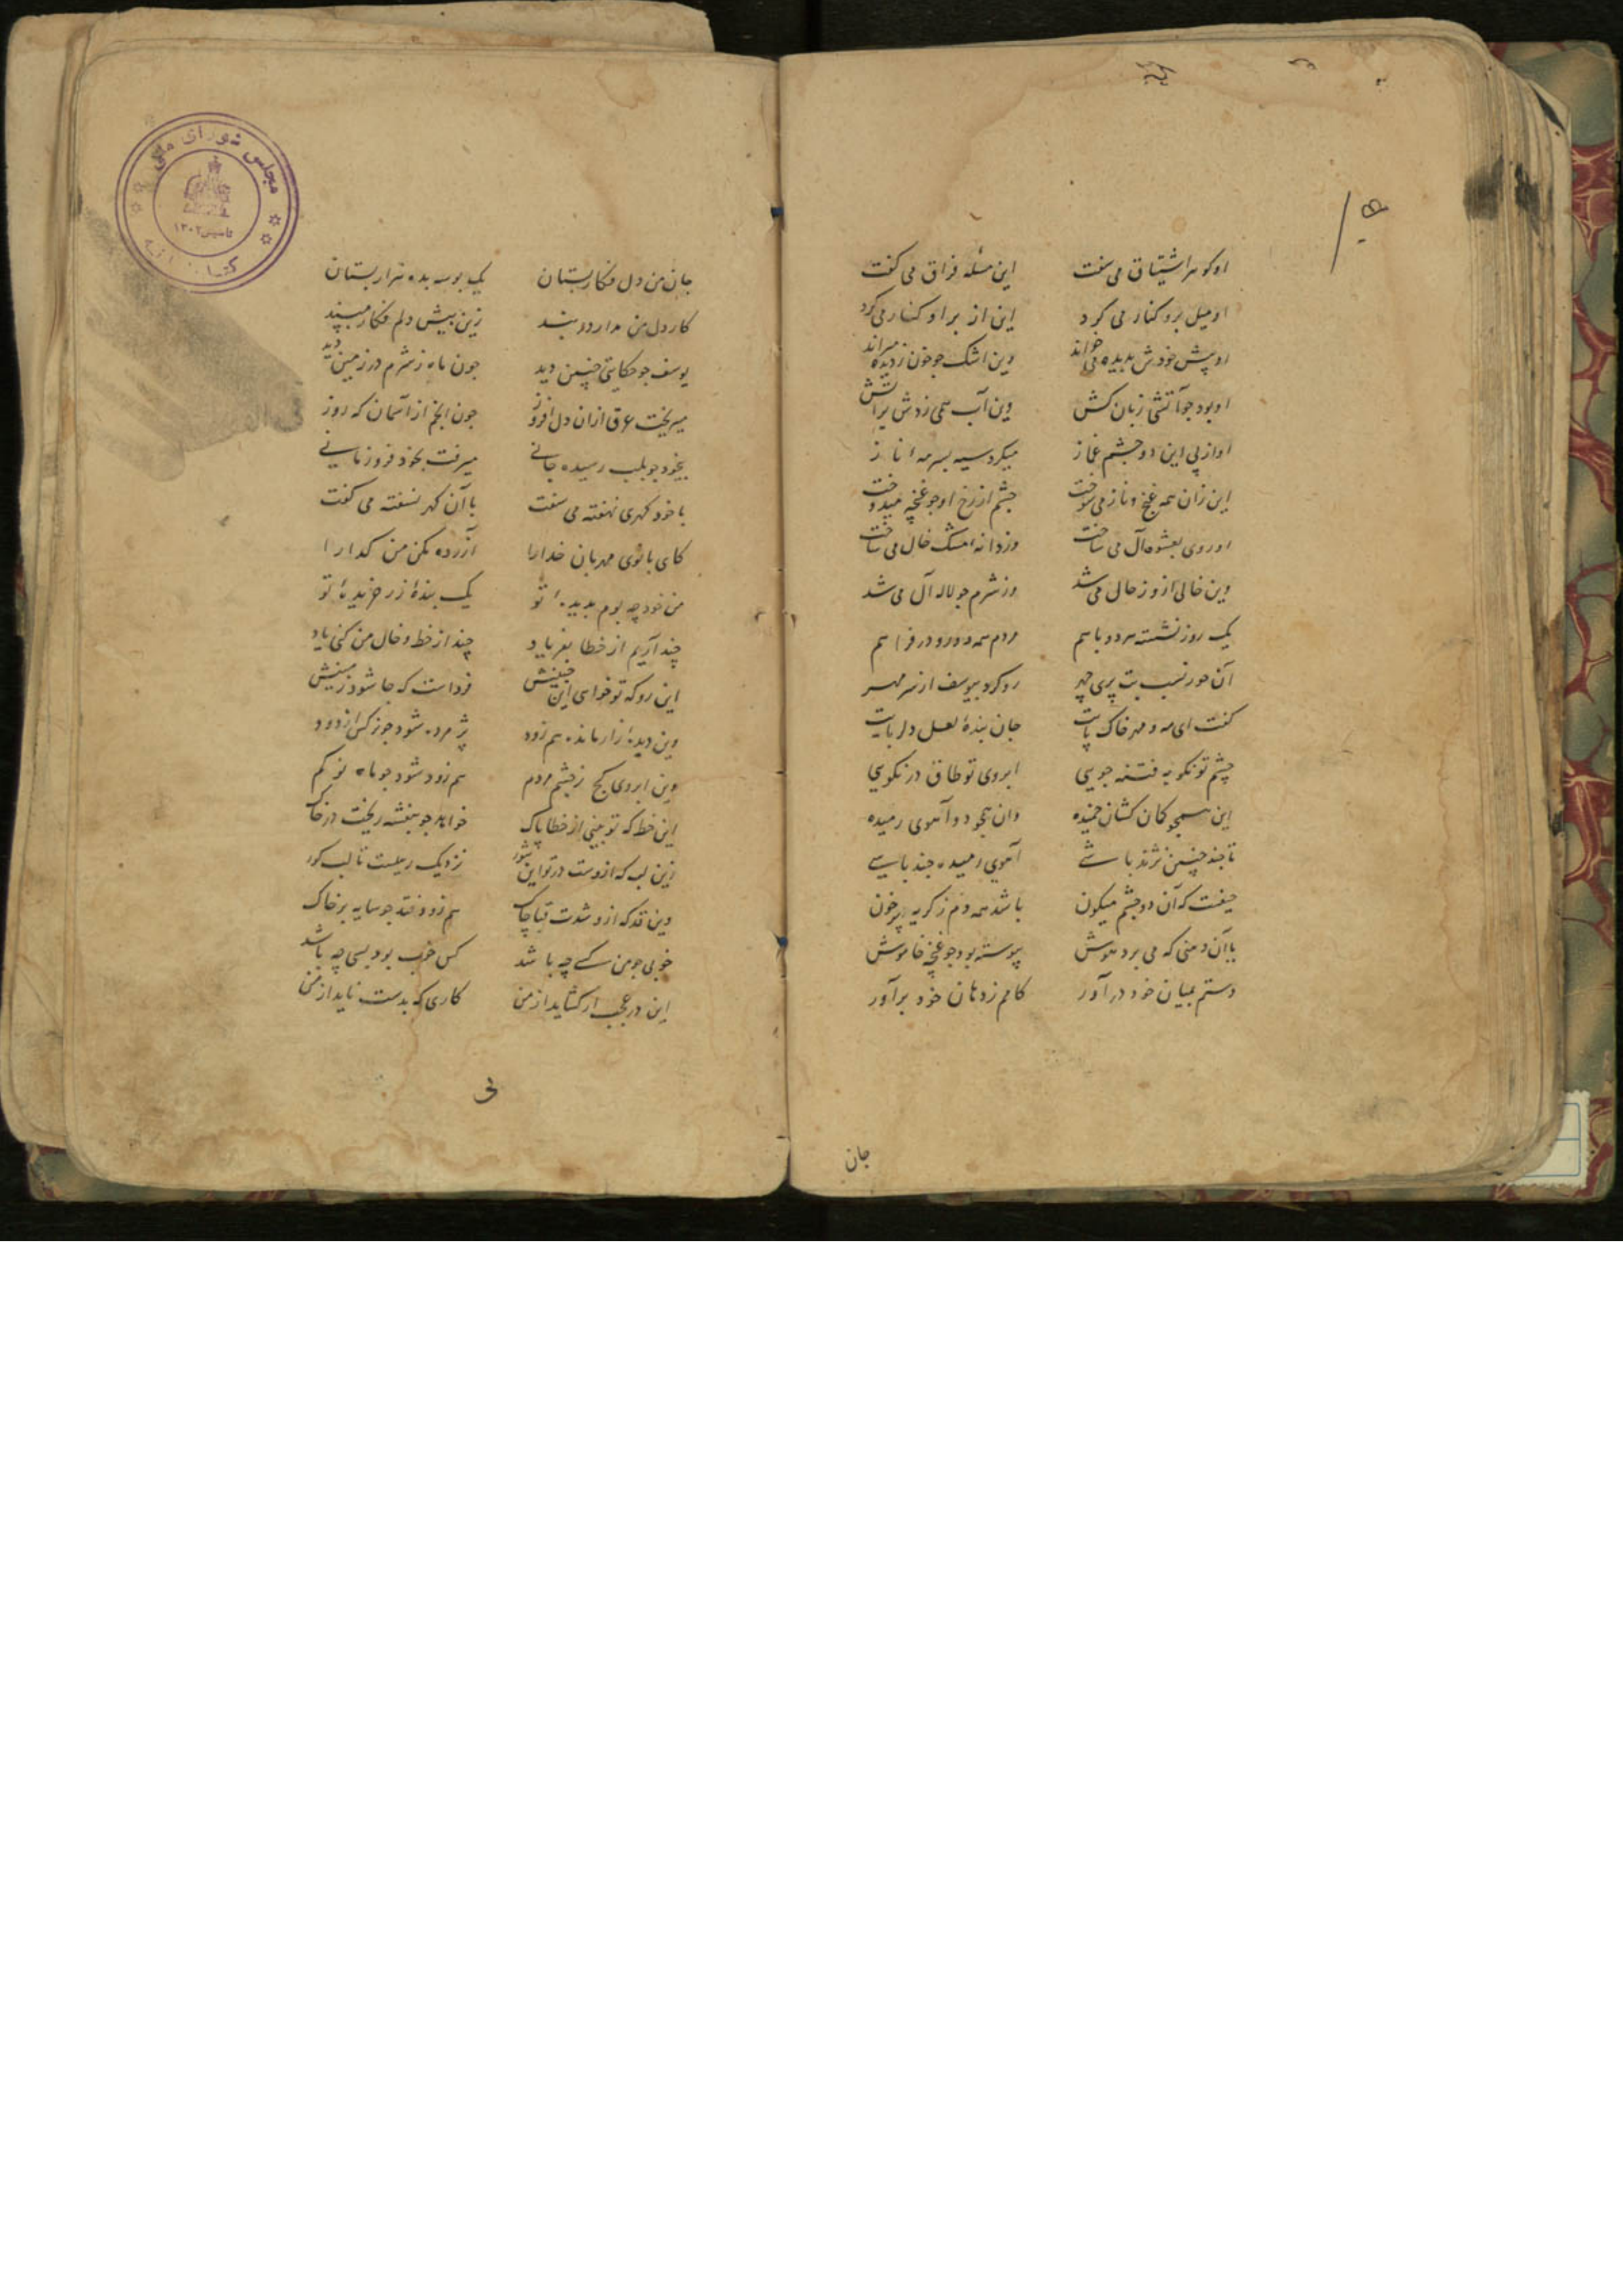 او گوهر اشتیاق می سفت این مسئله فراق می گفت
او میل برو کنار می کرد این از بر او کنار می کرد
او پیش خودش بدیده می خواند وین اشک چو خون ز دیده میراند
او بود جو آتشی زبان کش وین آب همی زدش بر آتش
او از پی این دو چشم غماز میکرد سیه بسرمه از ناز
این زان همه غنج و ناز می سوخت چشم از رخ او جو غنچه میدوخت
او روی بعشوه آل می ساخت وز دانه مشک خال می ساخت
وین خالی ازو ز حال می شد وز شرم جو لاله آل می شد
یک روز نشسته هر دو باهم مردم همه دور و در فراهم
آن حور نسب بت پری چهر رو کرد بیوسف از سر مهر
گفت ای مه و مهر خاک پایت جان بندهٔ لعل دلربایت
چشم تو نکو به فتنه جویی ابروی تو طاق در نکویی
این همچو کمان کشان خمیده وان همچو دو آهوی رمیده
تا جند چنین نژند باشی آهوی رمیده جند باشی
حیفست که آن دو چشم میگون باشد همه دم ز گریه پر خون
با آن دهنی که می برد هوش پیوسته بود جو غنچه خاموش
دستم بمیان خود در آور کامم ز دهان خود بر آور
جان
مجلس شورای ملی
تاسیس ۱۳۰۲
جان من دل فکار بستان یک بوسه بده هزار بستان
کار دل من مدار در بند زین بیش دلم فکار مپسند
یوسف جو حکایتی چنین دید جون ماه ز شرم در زمین دید
میریخت عرق ازان دل افروز جون انجم از آسمان که روز
بیخود جو بلب رسیده جانی میرفت بخود فرو زمانی
با خود گهری نهفته می سفت با آن گهر نسفته می گفت
کای بانوی مهربان خدا را آزرده مکن من گدا را
من خود چه بوم بدیدهٔ تو یک بندهٔ زر خریدهٔ تو
چند آریم از خطا بفریاد چند از خط و خال من کنی یاد
این رو که تو خوای این جنینش فرداست که جا شود زمینش
وین دیدهٔ زار مانده هم زود پژمرده شود جو نرگس از دود
وین ابروی کج ز چشم مردم هم زود شود جو ماه نو گم
این خط که تو بینی از خطا پاک خواهد جو بنفشه ریخت در خاک
زین لب که ازوست در تو این شور نزدیک رهیست تا لب گور
وین قد که ازو شدت قبا چاک هم زود فتد جو سایه بر خاک
خوبی جو من کسی چه باشد کس خوب بود بسی چه باشد
این در عجب ار گشاید از من کاری که بدست ناید از من